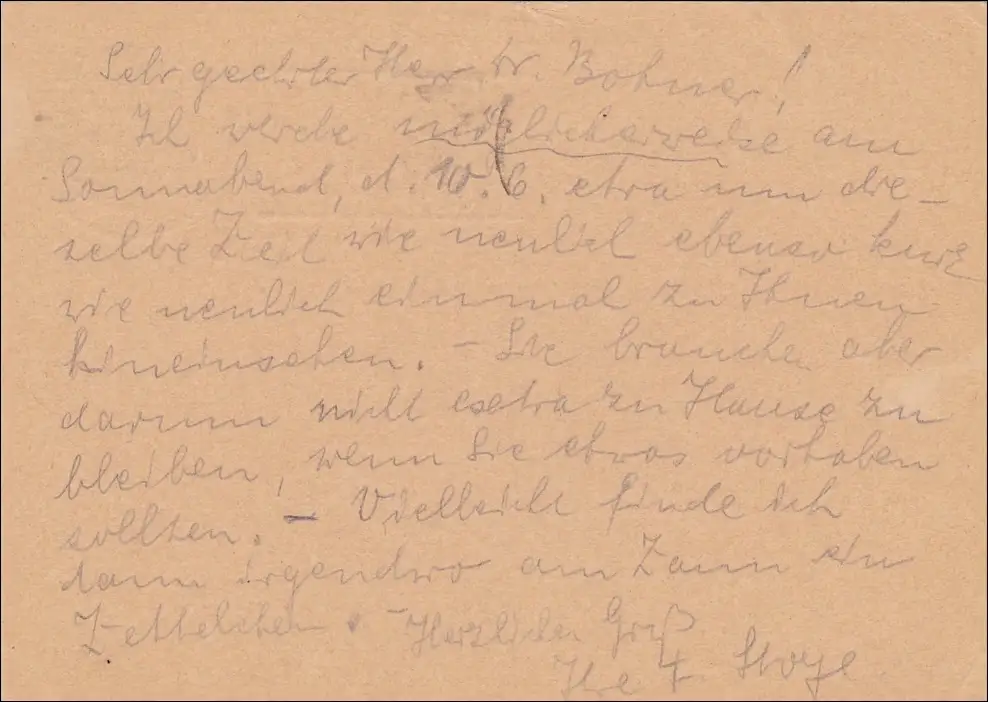 Sehr geehrter Herr Dr. Bohner!
Ich werde möglicherweise am
Sonnabend, d. 10. 6. etwa um die-
selbe Zeit wie neulich ebenso kurz
wie neulich einmal zu Ihnen
hineinsehen. - Sie brauchen aber
darum nicht extra zu Hause zu
bleiben, wenn Sie etwas vorhaben
sollten. - Vielleicht finde ich
dann irgendwo am Zaun ein
Zettelchen. - Herzlichen Gruß
Ihre F. Stoye